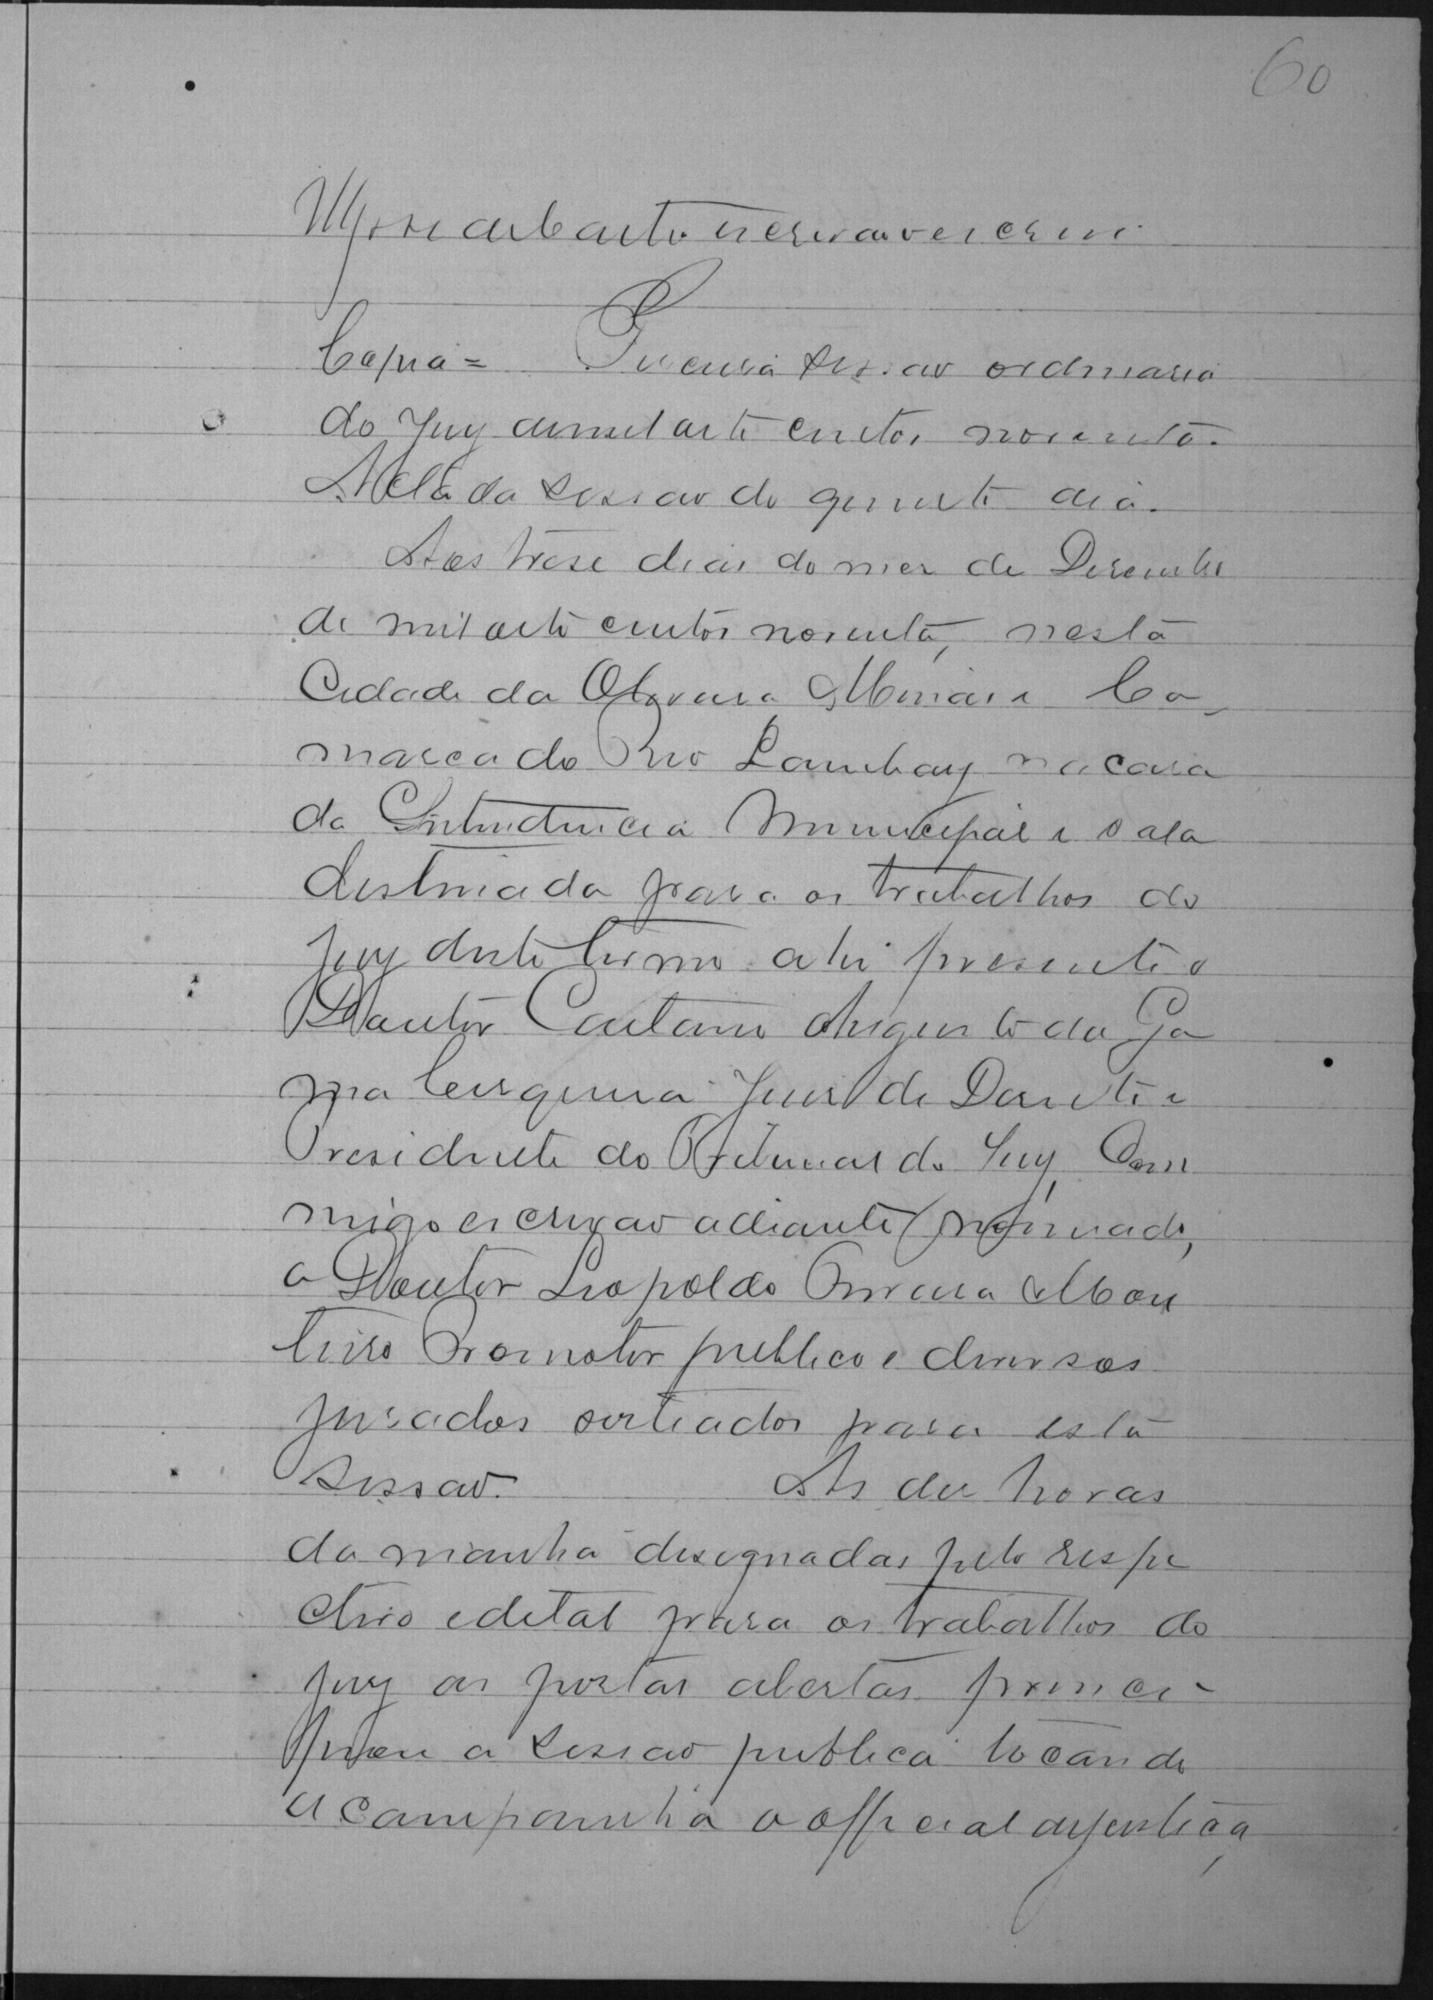 60
escrivão escrevi
Copia = Terceira sessão ordinaria
do Jury de mil oito centos noventa.
Acta da sessão do quinto dia.
Aos trese dias do mes de Desembro
de mil oito centos noventa, nesta
Cidade da Oliveira Minas e Co-
marca do Rio Lambary na casa
da Intendencia Municipal e sala
destinada para os trabalhos do
jury deste termo ahi presente o
Doutor Caetano Augusto da Ga
ma Cerqueira Juis de Dereito e
Presidente do Tribunal do Jury, Com
migo escrivão adiante nomeado,
o Doutor Leopoldo MoN
teiro Promotor publico e diversos
jurados sorteados para esta
sessão. As des horas
da manhã designadas pelo respe
ctivo edital para os trabalhos do
jury as portas abertas princi-
piou a sessão publica tocando
a campanhia o official de justiça